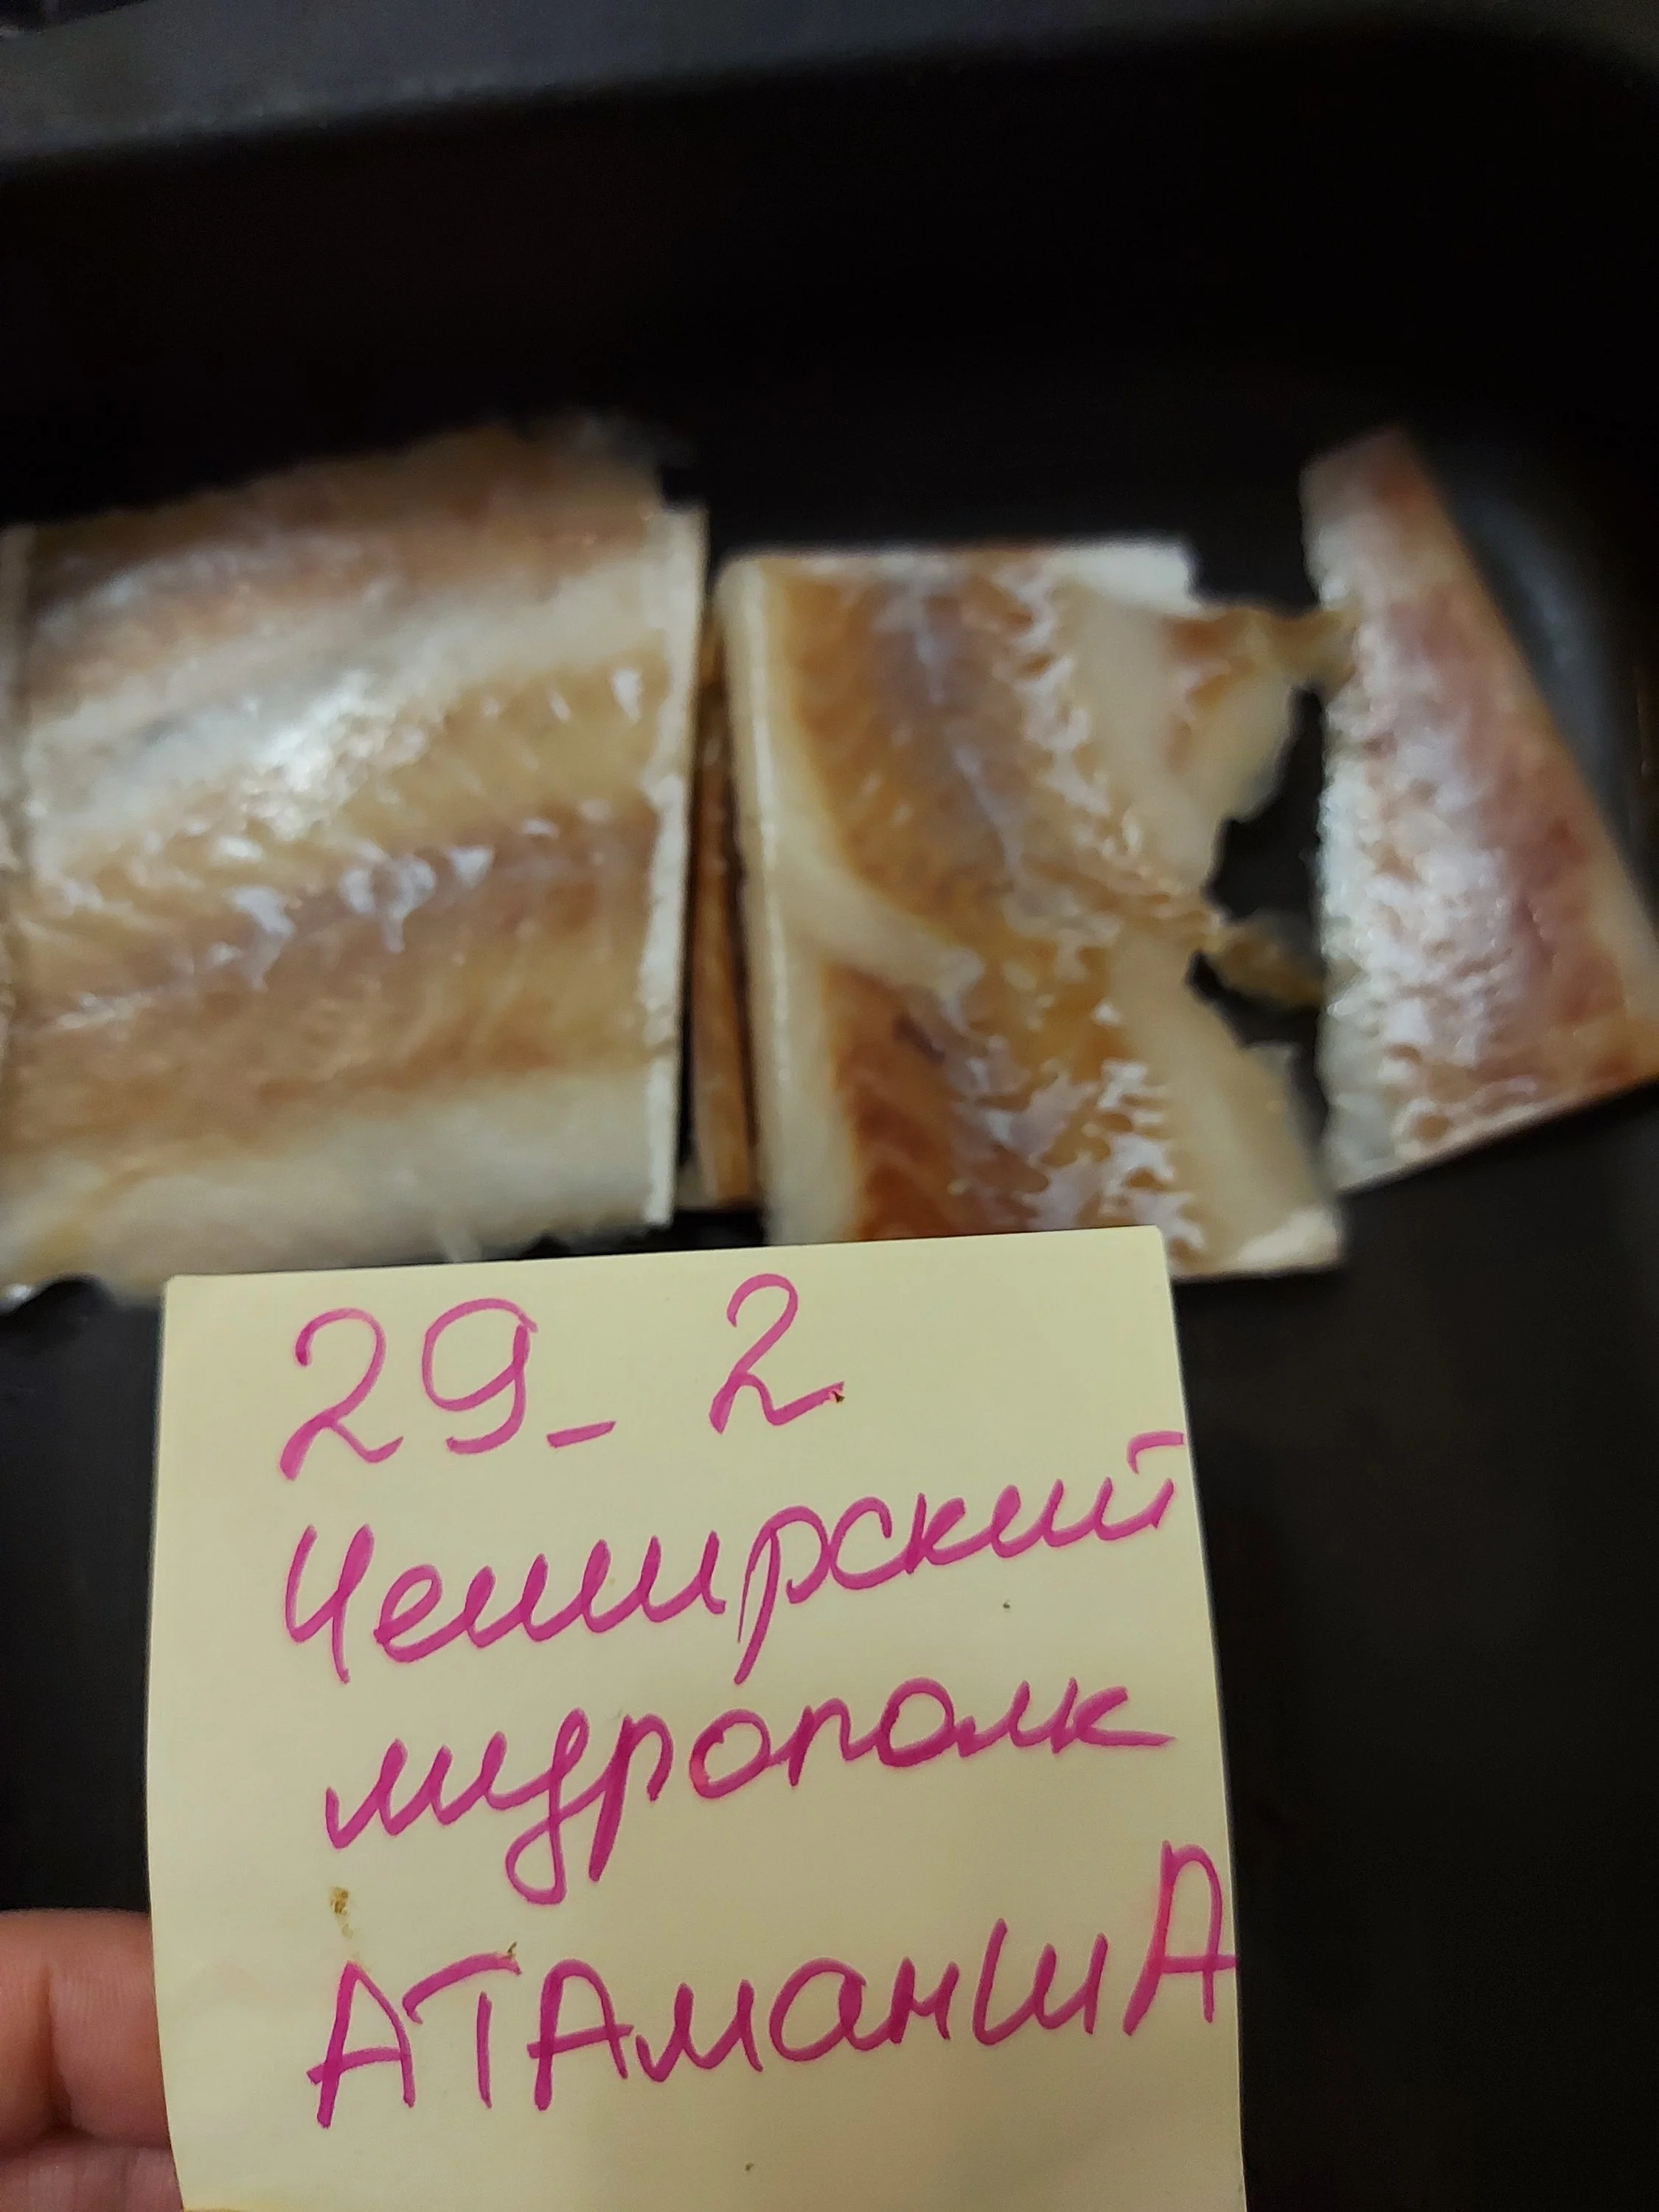 29_2
Чеширский
мудрополк
АТАманшА